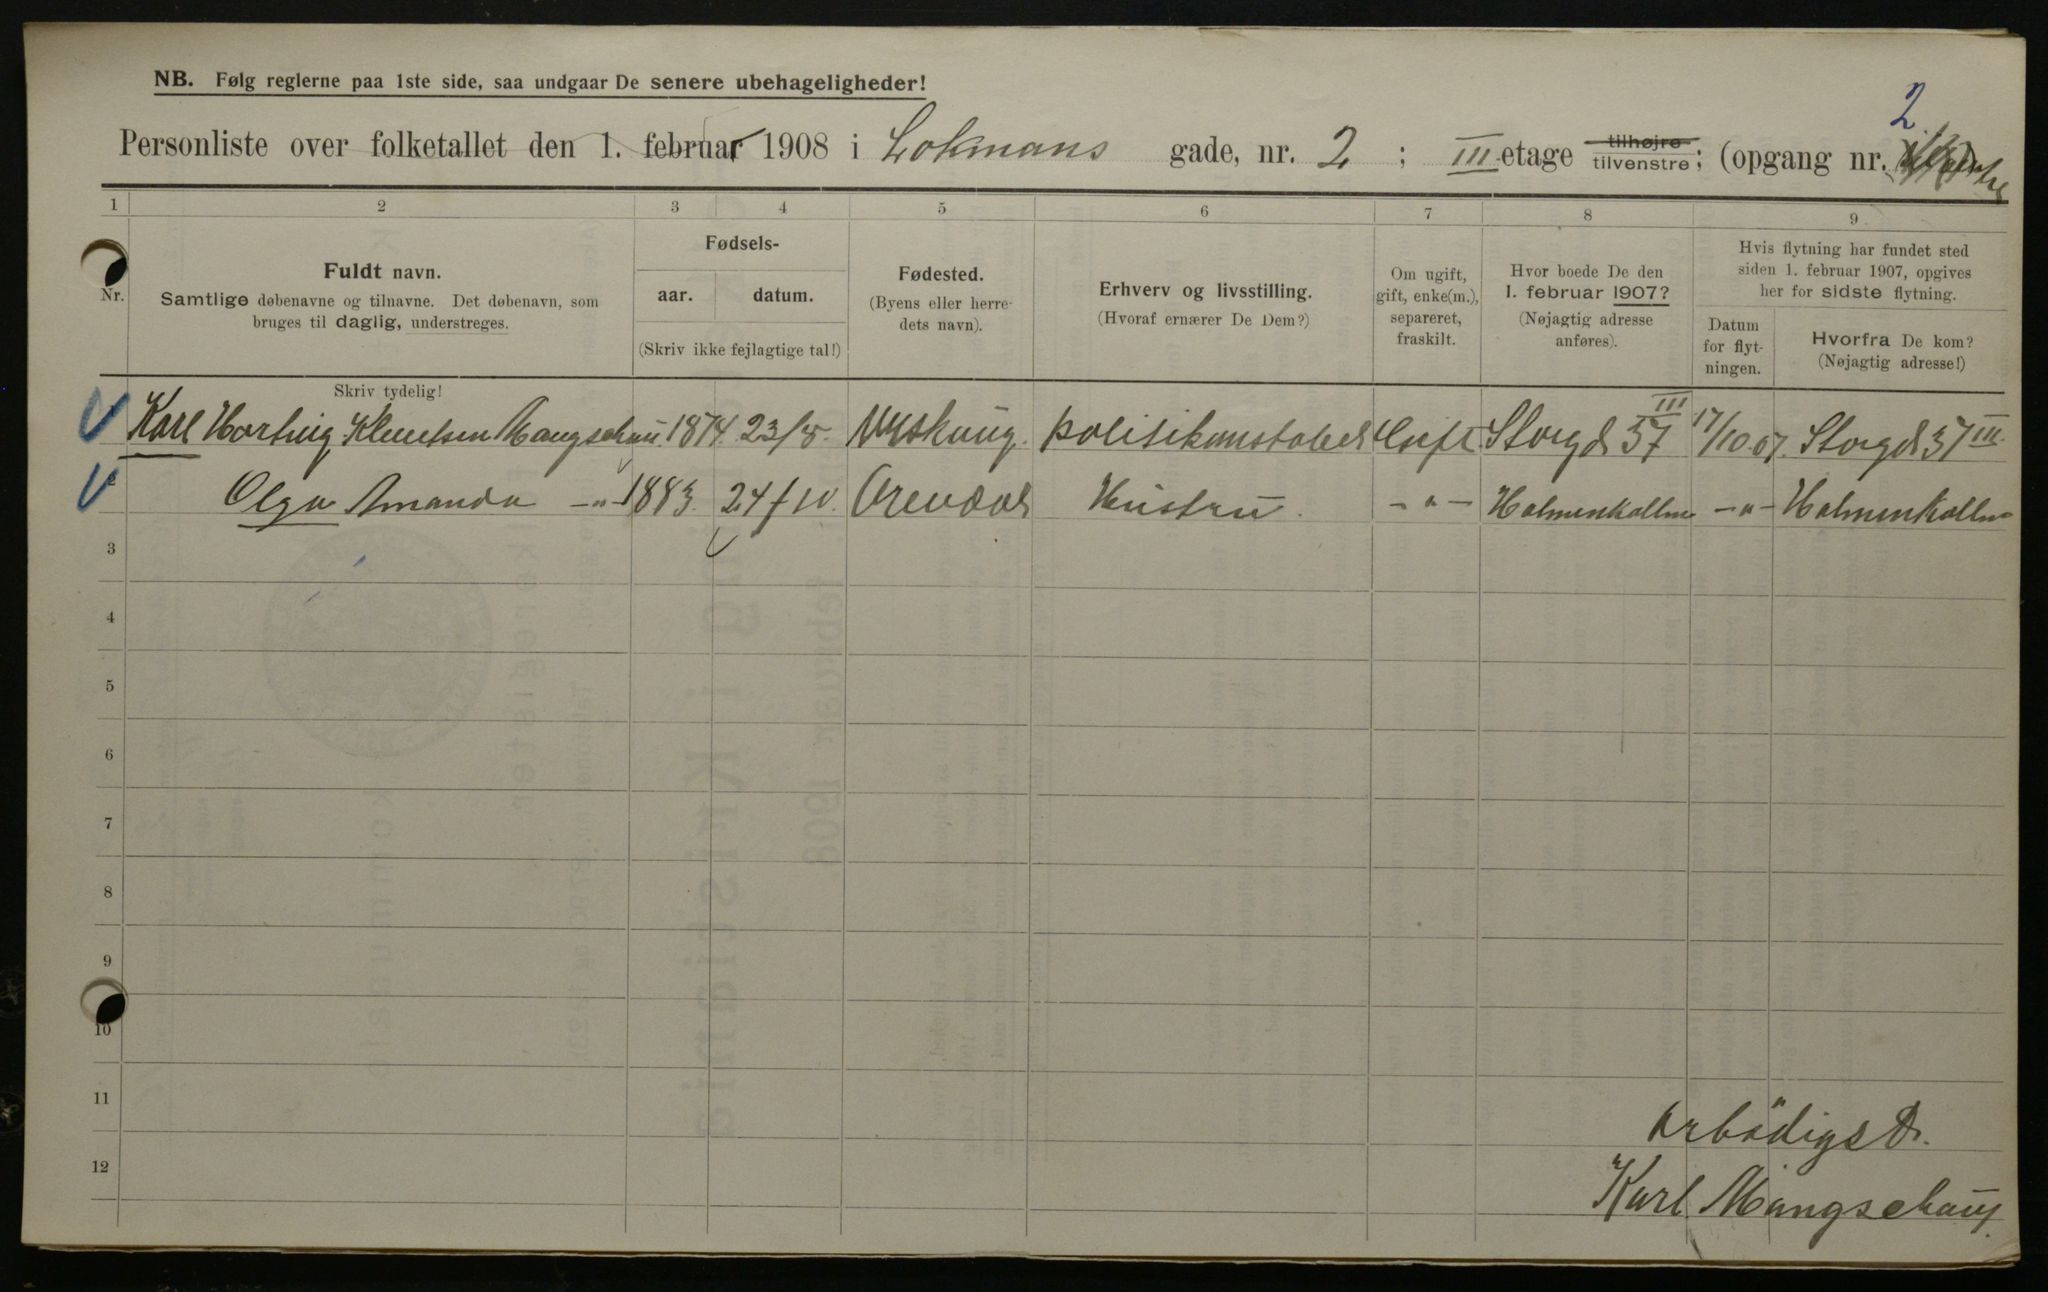 NB. Følg reglerne paa 1ste side, saa undgaar De senere ubehageligheder!
2
Personliste over folketallet den 1. februar 1908 i Lokmans gade, nr. 2 ; III etage tilhøjre tilvenstre; (opgang nr.
1 2 3 4 5 6 7 8 9
Nr.
Fuldt navn.
Samtlige døbenavne og tilnavne. Det døbenavn, som
bruges til daglig, understreges.
Skriv tydelig!
Fødsels-
aar. datum.
(Skriv ikke fejlagtige tal!)
Fødested.
(Byens eller herre-
dets navn).
Erhverv og livsstilling.
(Hvoraf ernærer De Dem?)
Om ugift,
gift, enke(m.),
separeret,
fraskilt.
Hvor boede De den
1. februar 1907?
(Nøjagtig adresse
anføres).
Hvis flytning har fundet sted
siden 1. februar 1907, opgives
her for sidste flytning.
Datum
for flyt-
ningen.
Hvorfra De kom?
(Nøjagtig adresse!)
Karl Hartvig Knutsen 1874 23/5 politikonstabel Gift Storgd 37 III 17/10.07. Storgd 37 III.
2 Olga Amanda -"- 1883. 24/10. Arendal Hustru. -"- Holmenkollen -"- Holmenkollen
3
4
5
6
7
8
9
10
11
12
Ærbödigst.
Karl Mangschou